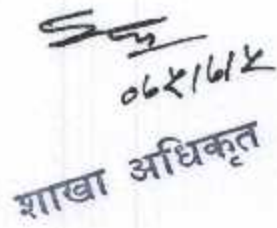 ०६५।६।५
शाखा अधिकृत